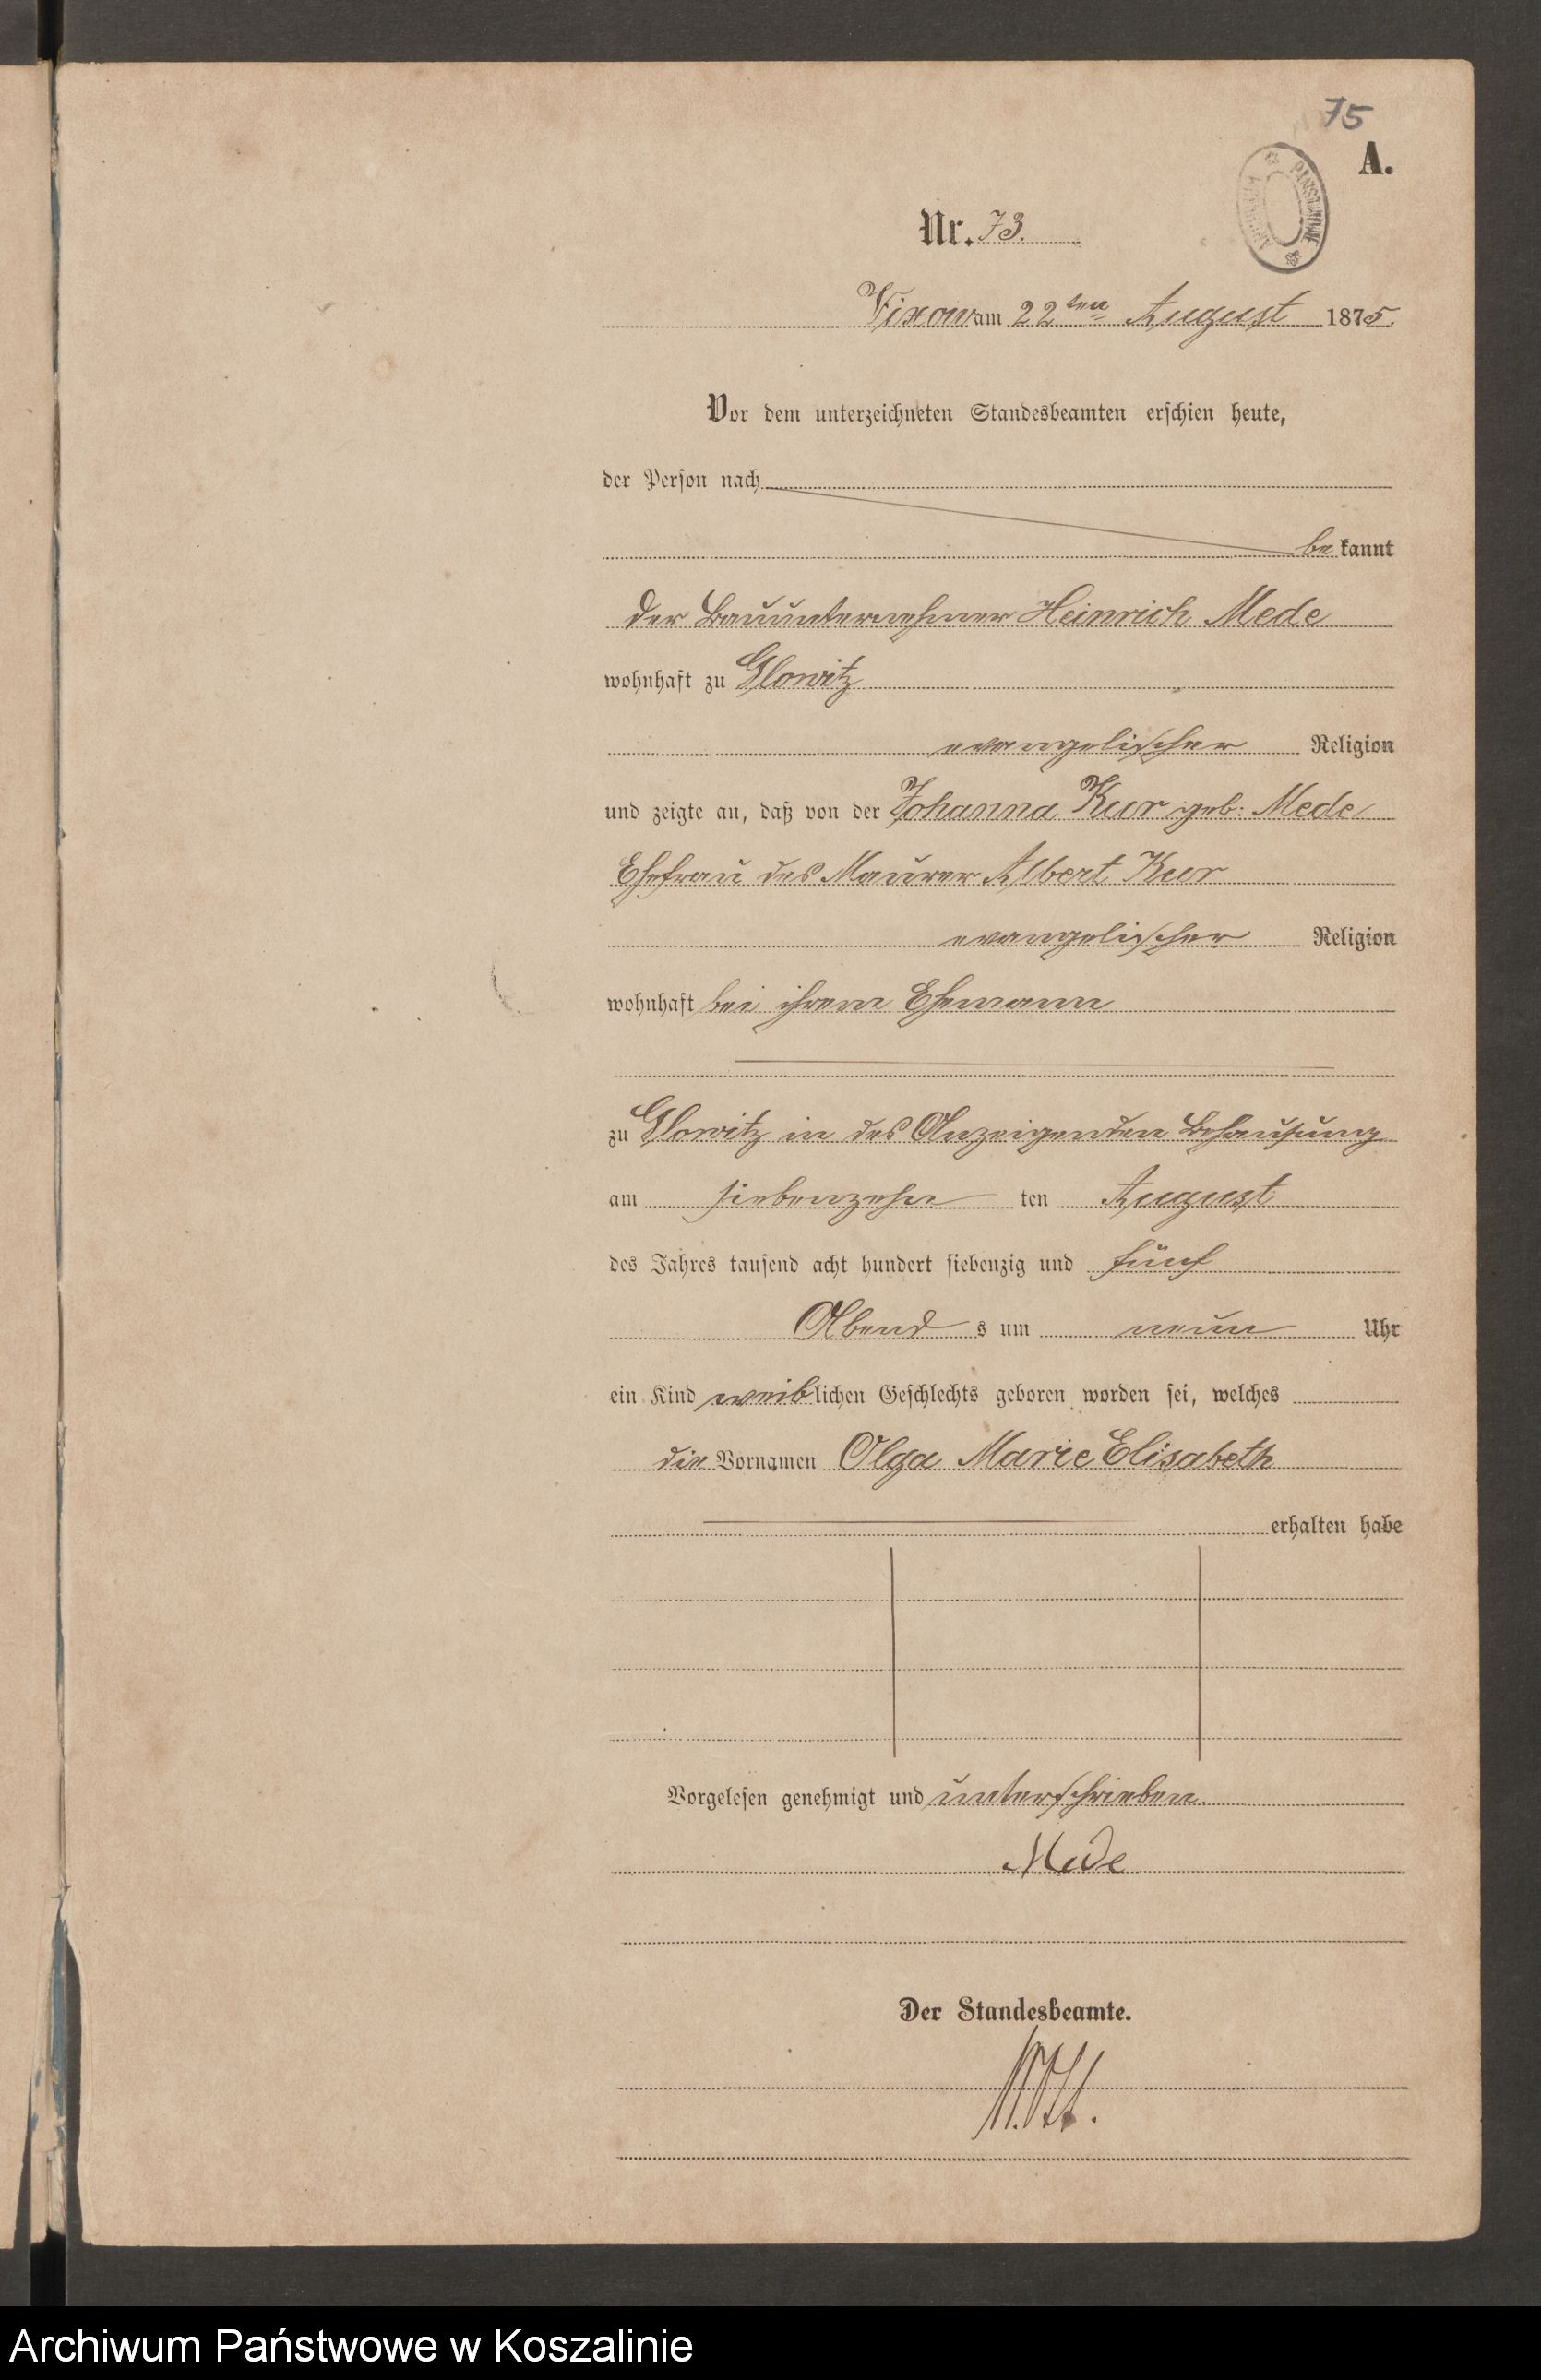 75
A.
Nr. 73.
Vixow am 22ten August 1875.
Vor dem unterzeichneten Standesbeamten erschien heute,
der Person nach
bekannt
der Bauunternehmer Heinrich Mede
wohnhaft zu Glowitz
evangelischer Religion
und zeigte an, daß von der Johanna Kur geb: Mede
Ehefrau des Maurer Albert Kur
evangelischer Religion
wohnhaft bei ihrem Ehemann
zu Glowitz in des Anzeigenden Behausung
am siebenzehn ten August
des Jahres tausend acht hundert siebenzig und fünf
Abend s um neun Uhr
ein Kind weiblichen Geschlechts geboren worden sei, welches
die Vornamen Olga Marie Elisabeth
erhalten habe
Vorgelesen genehmigt und unterschrieben.
Mede
Der Standesbeamte.
Archiwum Państwowe w Koszalinie